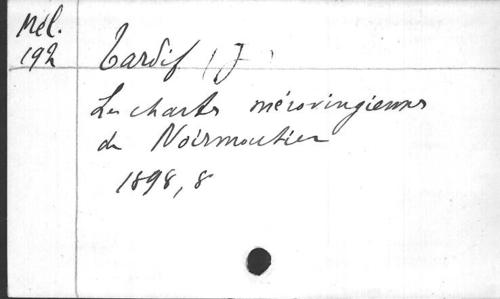 Mél.
192
Tardif (J)
Les chartes mérovingiennes
de Noirmoutier
1898, 8